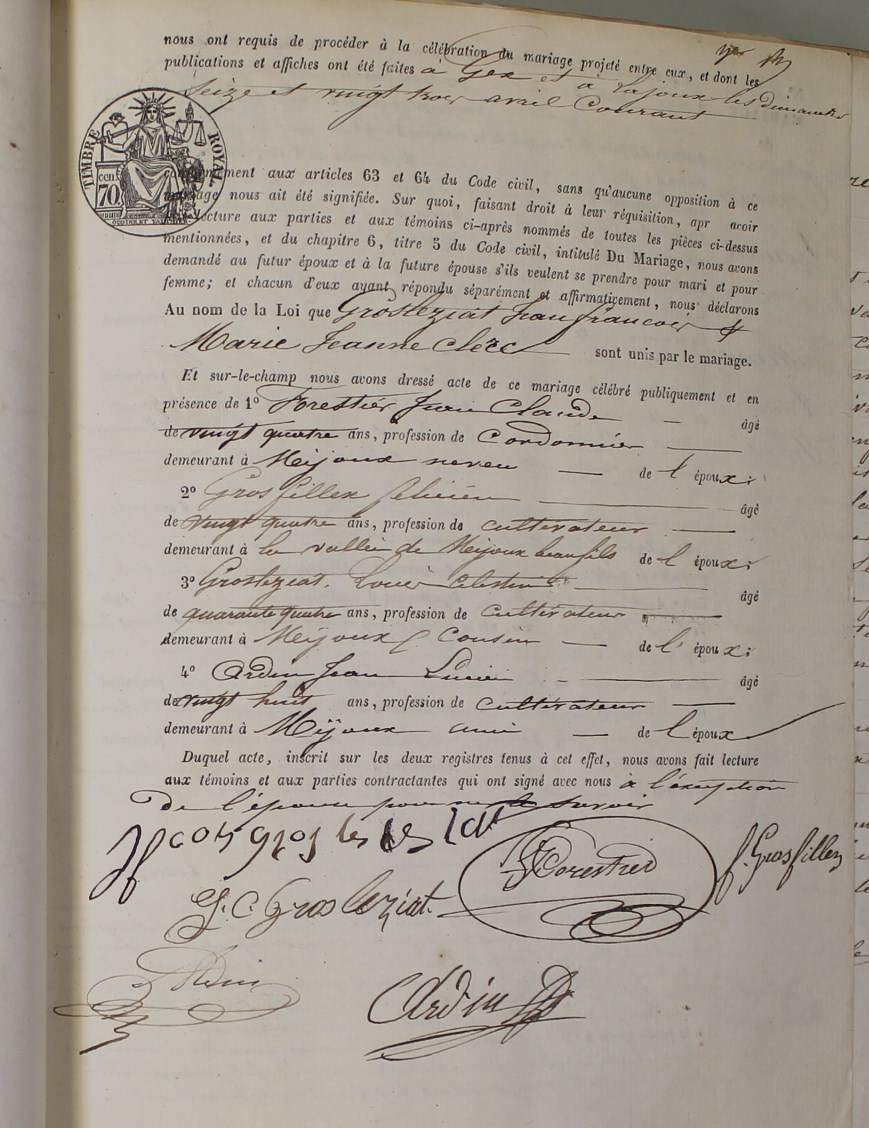 nous ont requis de procéder à la célébration du mariage projeté entre eux, et dont les
publications et affiches ont été faites à Gex et à Lajoux les dimanches
seize et vingt trois avril Courant
TIMBRE ROYAL
cen. 70
conformément aux articles 63 et 64 du Code civil, sans qu'aucune opposition à ce
mariage nous ait été signifiée. Sur quoi, faisant droit à leur réquisition, apr avoir
lecture aux parties et aux témoins ci-après nommés de toutes les pièces ci-dessus
mentionnées, et du chapitre 6, titre 5 du Code civil, intitulé Du Mariage, nous avons
demandé au futur époux et à la future épouse s'ils veulent se prendre pour mari et pour
femme; et chacun d'eux ayant répondu séparément et affirmativement, nous déclarons
Au nom de la Loi que Grosleziat Jean françois &
Marie Jeanne Clerc sont unis par le mariage.
Et sur-le-champ nous avons dressé acte de ce mariage célébré publiquement et en
présence de 1º Forestier Jean Claude âgé
de vingt quatre ans, profession de Cordonnier
demeurant à Meijoux neveu de l'époux;
2º Grosfillex félicien âgé
de vingt quatre ans, profession de cultivateur
demeurant à la vallée de Meijoux beaufils de l'époux;
3º Grosleziat Louis Célestin âgé
de quarante quatre ans, profession de cultivateur
demeurant à Meijoux Cousin de l'époux;
4º Ardin Jean Lucien âgé
de vingt huit ans, profession de cultivateur
demeurant à Mijoux ami de l'époux
Duquel acte, inscrit sur les deux registres tenus à cet effet, nous avons fait lecture
aux témoins et aux parties contractantes qui ont signé avec nous à l'éxception
De l'épouse pour ne savoir
gros
Forestier
f. Grosfillex
L. C. Grosleziat
Ardin
Ardin